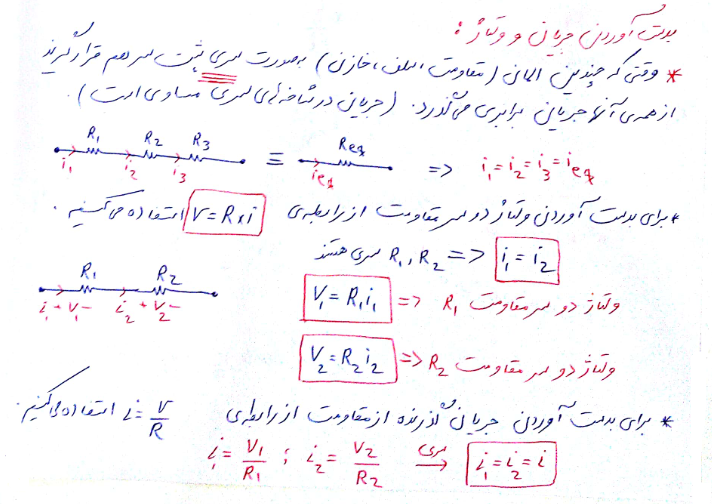 بدست آوردن جریان و ولتاژ :
* وقتی که چندین المانی (مقاومت، سلف، خازن) بصورت سری پشت سر هم قرار گیرند
از همه‌ی آنها جریان برابری می‌گذرد. (جریان در شاخه‌های سری مساوی است).
R₁ R₂ R₃ ≡ Req => i₁ = i₂ = i₃ = ieq
i₁ i₂ i₃ ieq
* برای بدست آوردن ولتاژ دو سر مقاومت از رابطه‌ی V = R×i استفاده می‌کنیم.
R₁, R₂ سری هستند => i₁ = i₂
R₁ R₂
i₁ + V₁ - i₂ + V₂ -
ولتاژ دو سر مقاومت R₁ => V₁ = R₁i₁
ولتاژ دو سر مقاومت R₂ => V₂ = R₂i₂
* برای بدست آوردن جریان گذرنده از مقاومت از رابطه‌ی i = V/R استفاده می‌کنیم.
i₁ = V₁/R₁ ; i₂ = V₂/R₂ سری → i₁ = i₂ = i